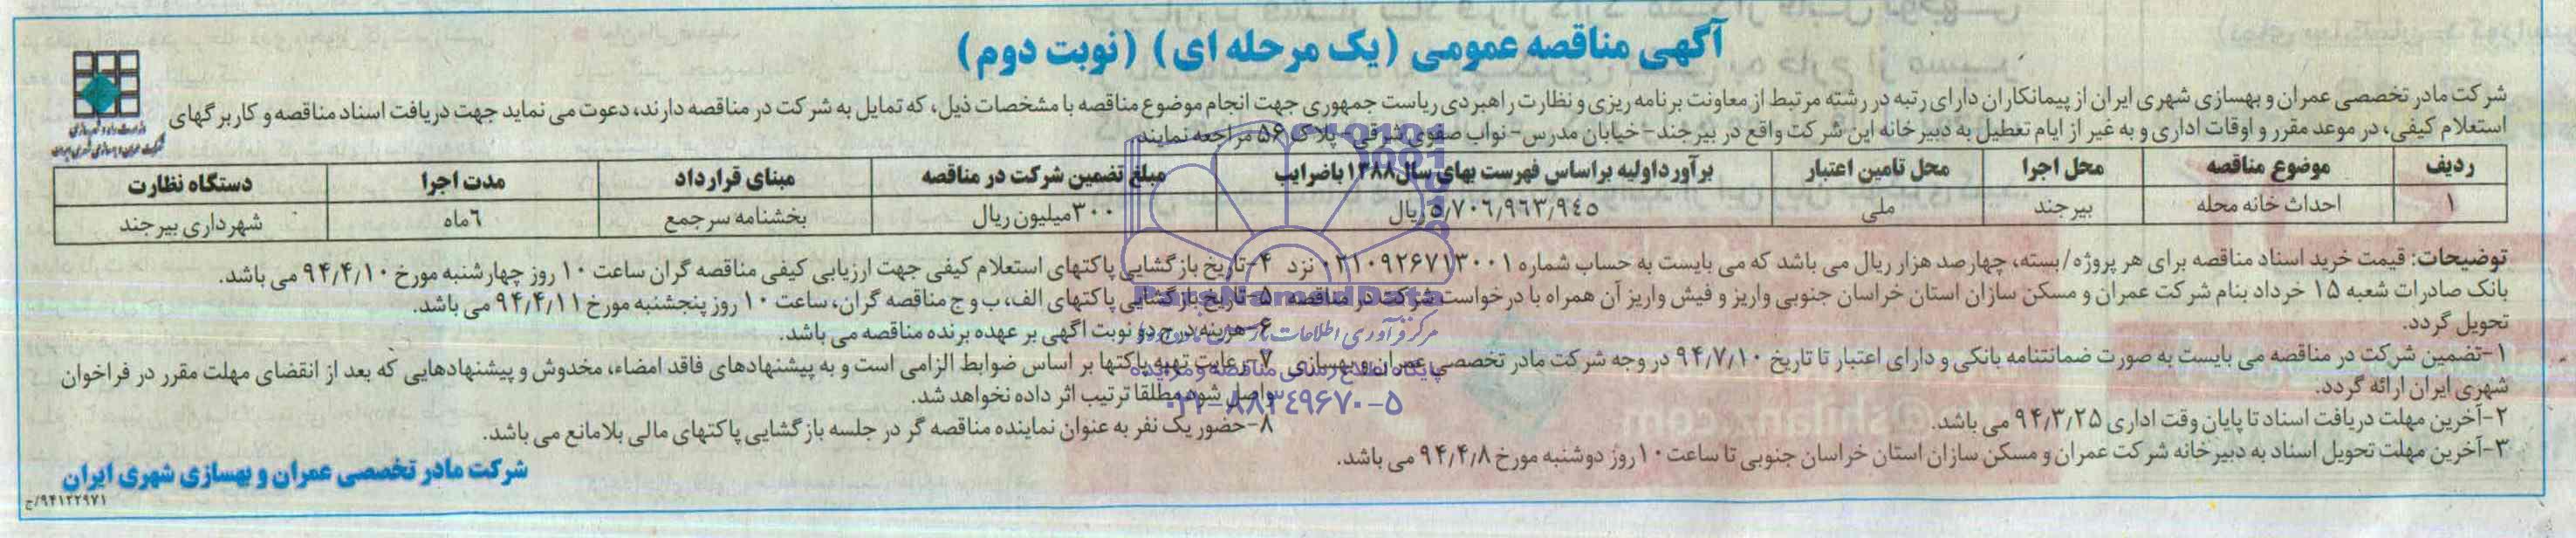 آگهی مناقصه عمومی (یک مرحله ای) (نوبت دوم)
شرکت مادر تخصصی عمران و بهسازی شهری ایران از پیمانکاران دارای رتبه در رشته مرتبط از معاونت برنامه ریزی و نظارت راهبردی ریاست جمهوری جهت انجام موضوع مناقصه با مشخصات ذیل، که تمایل به شرکت در مناقصه دارند، دعوت می نماید جهت دریافت اسناد مناقصه و کاربرگهای
استعلام کیفی، در موعد مقرر و اوقات اداری و به غیر از ایام تعطیل به دبیرخانه این شرکت واقع در بیرجند- خیابان مدرس- نواب صفوی شرقی- پلاک ۵۶ مراجعه نمایند.
وزارت راه و شهرسازی
شرکت عمران و بهسازی شهری ایران
ردیف موضوع مناقصه محل اجرا محل تامین اعتبار برآورد اولیه براساس فهرست بهای سال۱۳۸۸ باضرایب مبلغ تضمین شرکت در مناقصه مبنای قرارداد مدت اجرا دستگاه نظارت
۱ احداث خانه محله بیرجند ملی ۵٫۷۰۶٫۹۶۳٫۹٤۵ریال ۳۰۰میلیون ریال بخشنامه سرجمع ٦ماه شهرداری بیرجند
توضیحات: قیمت خرید اسناد مناقصه برای هر پروژه/بسته، چهارصد هزار ریال می باشد که می بایست به حساب شماره ۰۲۱۰۹۲۶۷۱۳۰۰۱ نزد
بانک صادرات شعبه ۱۵ خرداد بنام شرکت عمران و مسکن سازان استان خراسان جنوبی واریز و فیش واریز آن همراه با درخواست شرکت در مناقصه
تحویل گردد.
۱-تضمین شرکت در مناقصه می بایست به صورت ضمانتنامه بانکی و دارای اعتبار تا تاریخ ۹۴٫۷٫۱۰ در وجه شرکت مادر تخصصی عمران و بهسازی
شهری ایران ارائه گردد.
۲-آخرین مهلت دریافت اسناد تا پایان وقت اداری ۹۴٫۳٫۲۵ می باشد.
۳-آخرین مهلت تحویل اسناد به دبیرخانه شرکت عمران و مسکن سازان استان خراسان جنوبی تا ساعت ۱۰ روز دوشنبه مورخ ۹۴٫۴٫۸ می باشد.
۴-تاریخ بازگشایی پاکتهای استعلام کیفی جهت ارزیابی کیفی مناقصه گران ساعت ۱۰ روز چهارشنبه مورخ ۹۴٫۴٫۱۰ می باشد.
۵- تاریخ بازگشایی پاکتهای الف، ب و ج مناقصه گران، ساعت ۱۰ روز پنجشنبه مورخ ۹۴٫۴٫۱۱ می باشد.
۶-هزینه درج دو نوبت آگهی بر عهده برنده مناقصه می باشد.
۷-رعایت تهیه پاکتها بر اساس ضوابط الزامی است و به پیشنهادهای فاقد امضاء، مخدوش و پیشنهادهایی که بعد از انقضای مهلت مقرر در فراخوان
واصل شود مطلقا ترتیب اثر داده نخواهد شد.
۸-حضور یک نفر به عنوان نماینده مناقصه گر در جلسه بازگشایی پاکتهای مالی بلامانع می باشد.
شرکت مادر تخصصی عمران و بهسازی شهری ایران
۹۴۱۲۲۹۷۱/ج
ParsNamadData
پایگاه اطلاع رسانی مناقصه و مزایده
۰۲۱-۸۸۳۴۹۶۷۰-۵